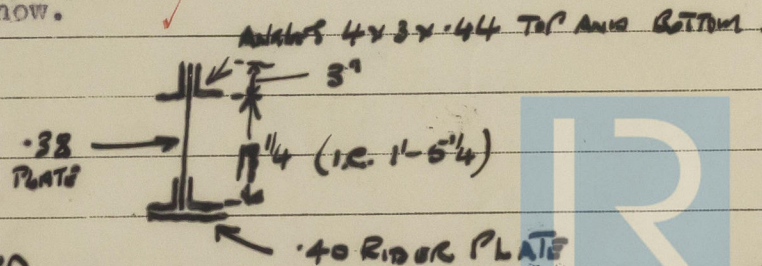 now.
ANGLES 4 x 3 x .44 TOP AND BOTTOM.
3"
.38
PLATE
17 1/4 (i.e. 1'-5 1/4)
.40 RIDER PLATE